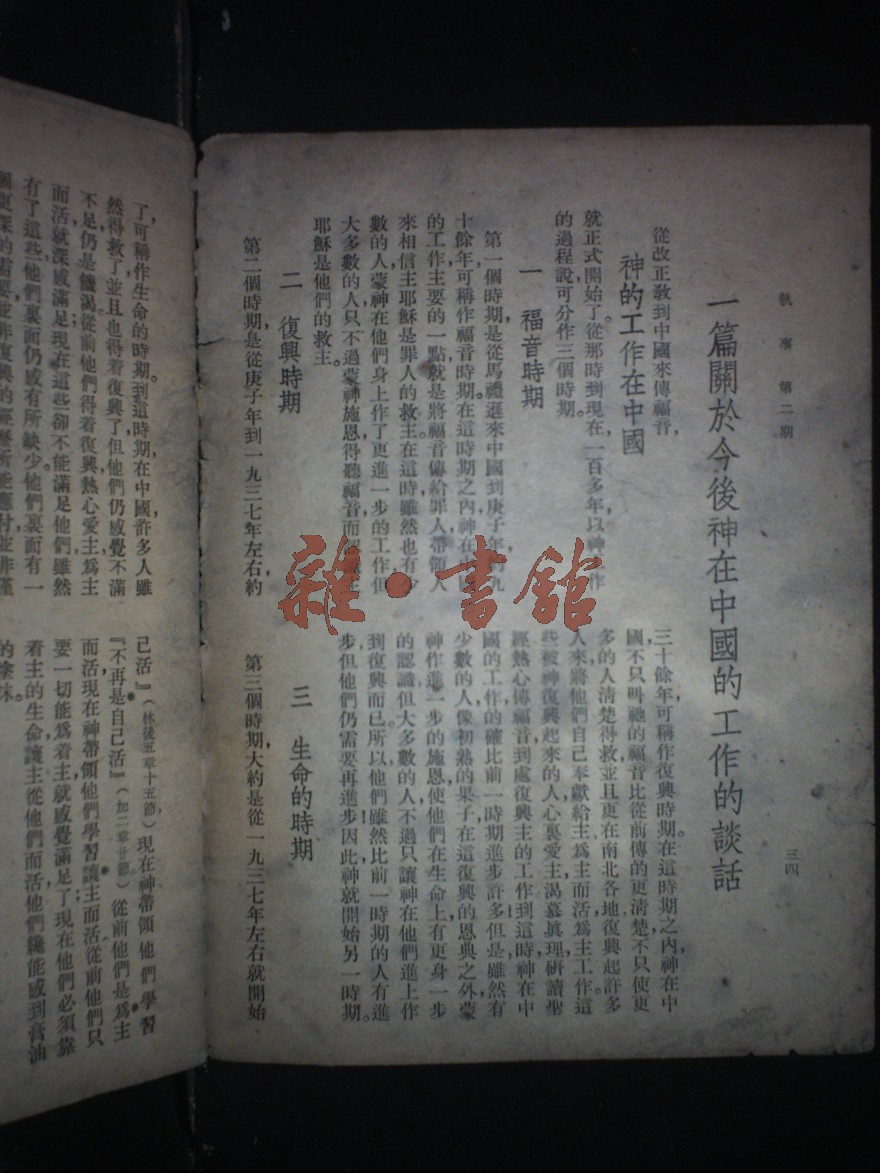 執事 第二期
三四
一篇關於今後神在中國的工作的談話
從改正教到中國來傳福音,
神的工作在中國
就正式開始了。從那時到現在,一百多年以來,神工作
的過程說可分作三個時期。
一 福音時期
第一個時期是從馬禮遜來中國到庚子年,約九
十餘年,可稱作福音時期。在這時期之內,神在中國
的工作主要的一點,就是將福音傳給罪人,帶領人
來相信主耶穌是罪人的救主。在這時雖然也有少
數的人蒙神在他們身上作了更進一步的工作,但
大多數的人只不過蒙神施恩得聽福音,而認識主
耶穌是他們的救主。
二 復興時期
第二個時期,是從庚子年到一九三七年左右,約
三十餘年,可稱作復興時期。在這時期之內,神在中
國不只叫祂的福音比從前傳的更清楚,不只使更
多的人清楚得救,並且更在南北各地復興起許多
人來,將他們自己奉獻給主,為主而活,為主工作。這
些被神復興起來的人,心裏愛主,渴慕眞理,研讀聖
經,熱心傳福音,到處復興主的工作!到這時,神在中
國的工作的確比前一時期進步許多。但是雖然有
少數的人像初熟的果子,在這復興的恩典之外,蒙
神作進一步的施恩,使他們在生命上有更身一步
的認識,但大多數的人不過只讓神在他們進上作
到復興而已。所以他們雖然比前一時期的人有進
步,但他們仍需要再進步!因此神就開始另一時期。
三 生命的時期
第三個時期,大約是從一九三七年左右就開始
了,可稱作生命的時期。到這時期,在中國許多人雖
然得救了,並且也得着復興了,但他們仍感覺不滿
不足,仍是饑渴。從前他們得着復興,熱心愛主,為主
而活,就深感滿足;現在這些卻不能滿足他們。雖然
有了這些,他們裏面仍感有所缺少。他們裏面有一
個更深的需要,並非復興的經歷所能應付,並非僅
己活』(林後五章十五節)現在神帶領他們學習
『不再是自己活』(加二章廿節)從前他們是為主
而活,現在神帶領他們學習讓主而活。從前他們只
要一切能為着主,就感覺滿足了;現在他們必須靠
着主的生命,讓主從他們而活,他們纔能感到膏油
的塗抹。
雜·書館